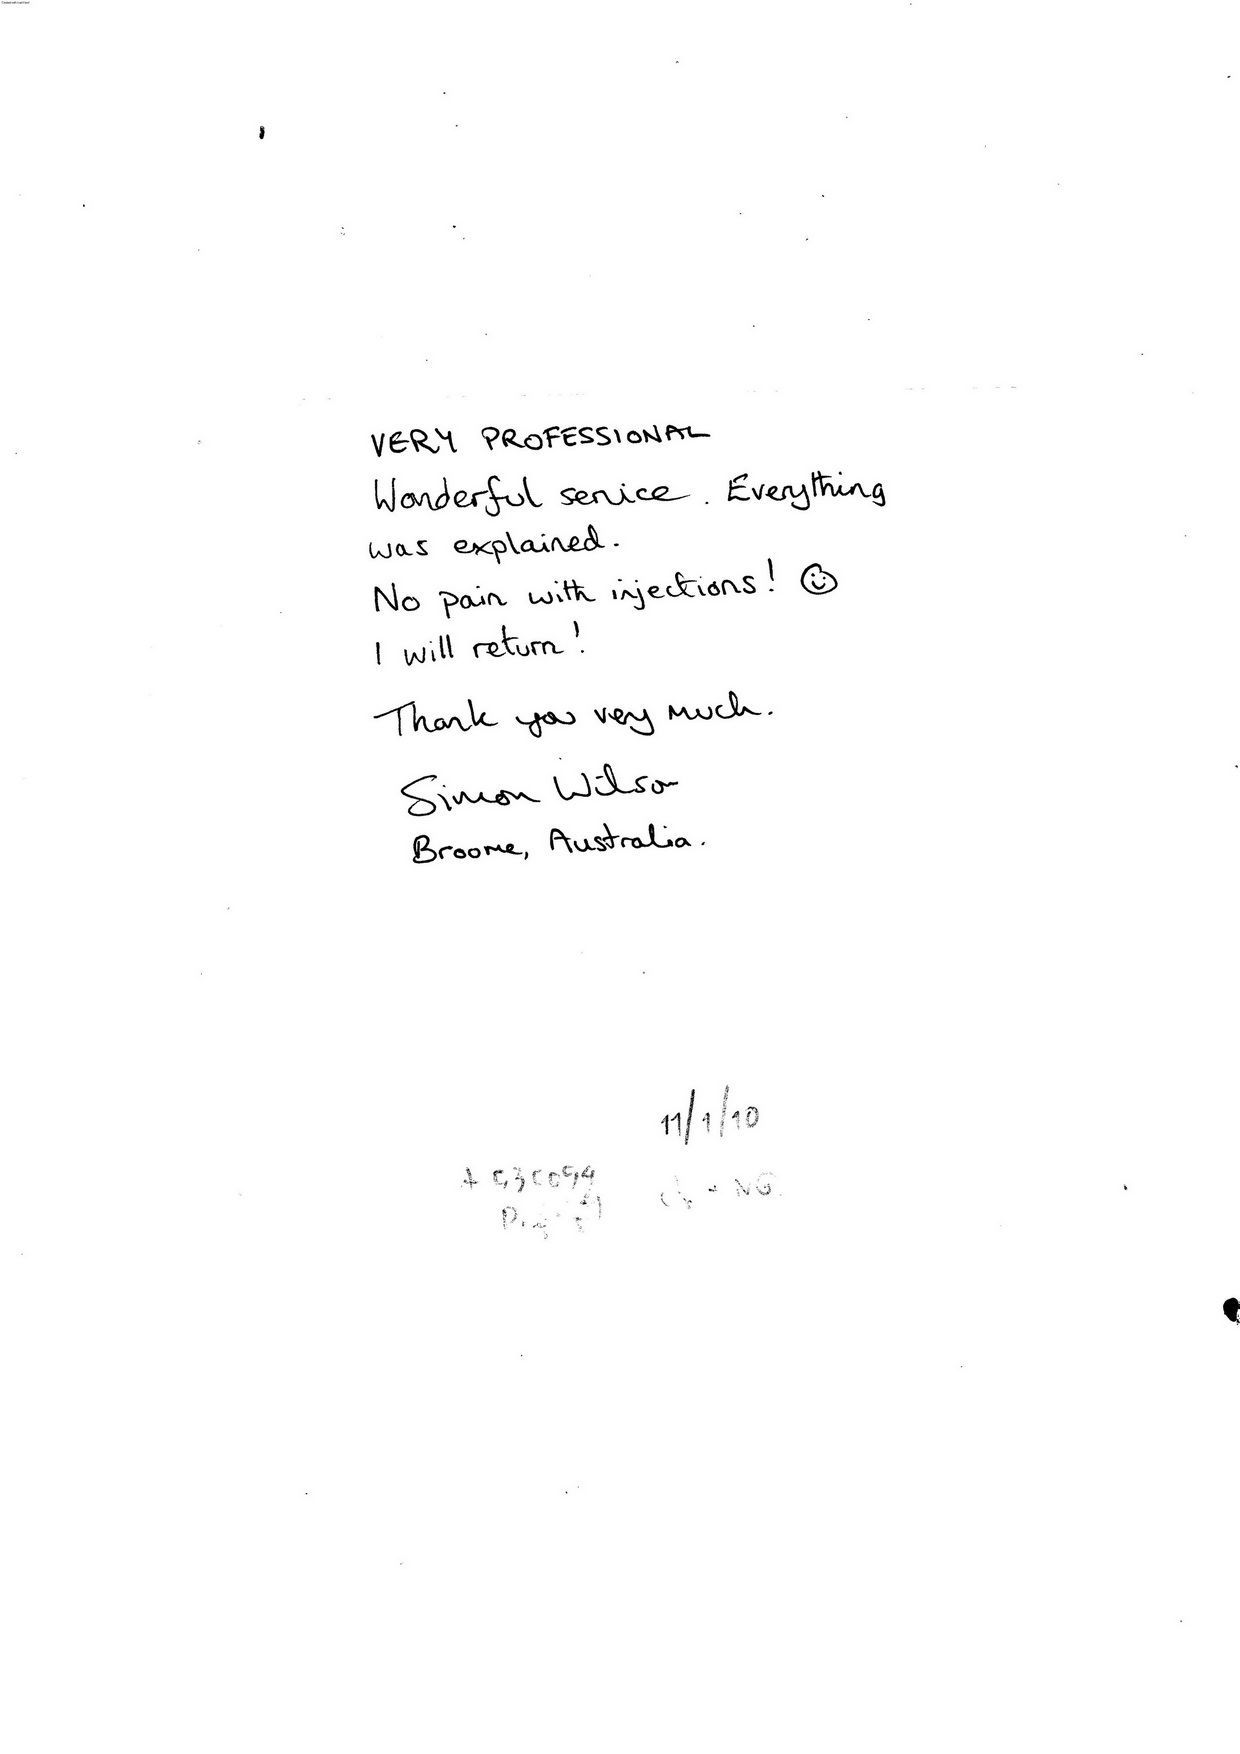 VERY PROFESSIONAL
Wonderful service. Everything
was explained.
No pain with injections! ☺
I will return!
Thank you very much.
Simon Wilson
Broome, Australia.
11/1/10
NG